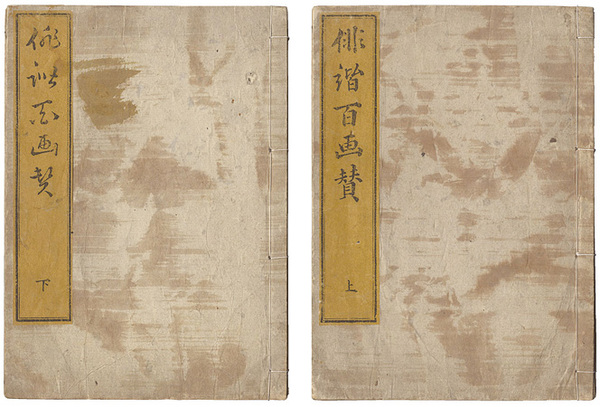 俳諧百画賛
上
俳諧百画賛
下